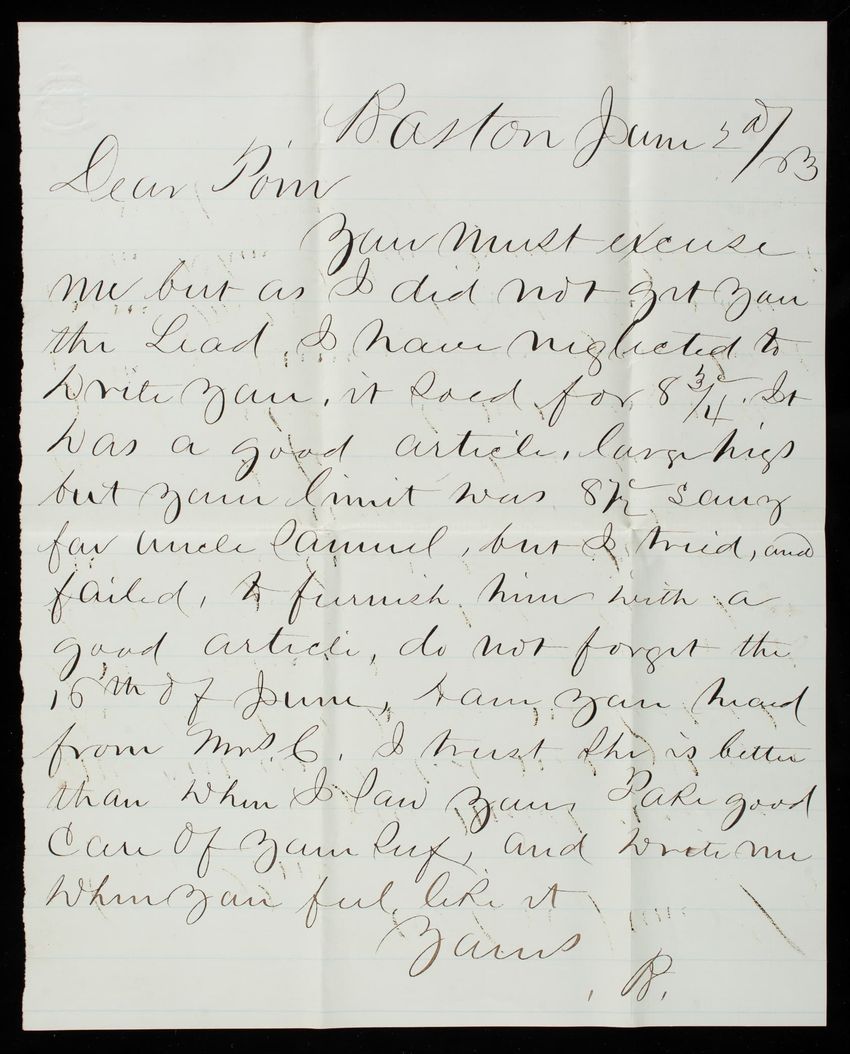 Boston June 2d/83
Dear Tom
You must excuse
me but as I did not get you
the Lead, I have neglected to
write you, it sold for 8 3/4 c. It
was a good article, large pigs
but your limit was 8 1/2 c Sorry
for uncle Samuel, but I tried, and
failed, to furnish him with a
good article, do not forget the
16th of June, have you heard
from Mrs. C. I trust she is better
than when I saw you, Take good
care of yourself, and write me
when you feel like it
Yours
B.